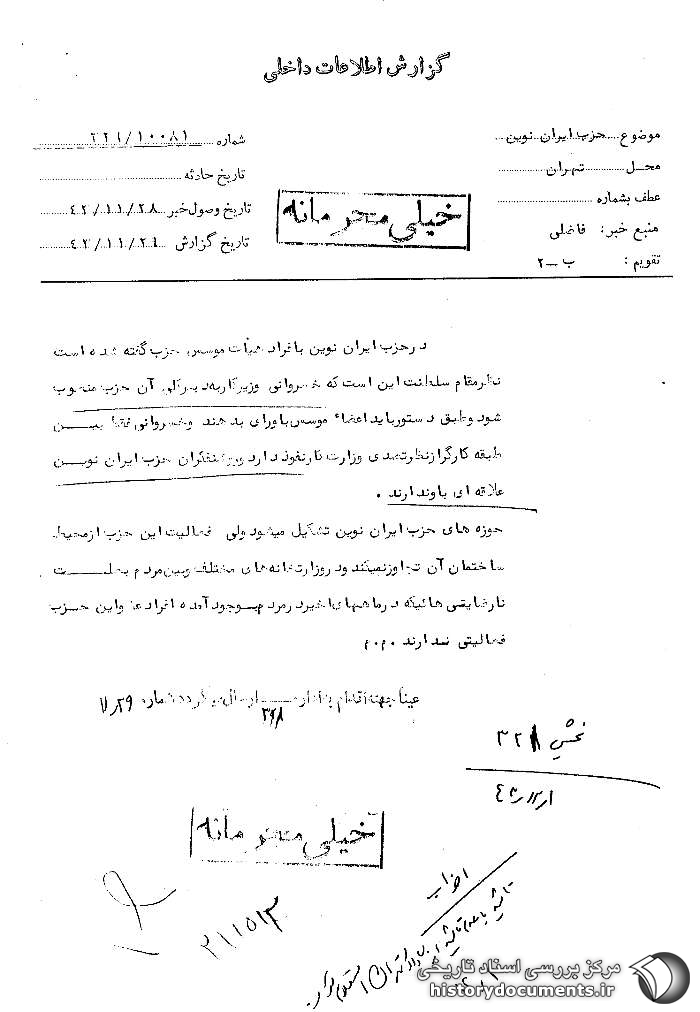 گزارش اطلاعات داخلی
موضوع حزب ایران نوین
شماره ۳۲۱/۱۰۰۸۱
محل تهران
تاریخ حادثه
عطف بشماره
تاریخ وصول خبر ۴۲/۱۱/۲۸
منبع خبر: فاضلی
تاریخ گزارش ۴۲/۱۱/۲۹
تقویم: ب-۲
خیلی محرمانه
در حزب ایران نوین بافراد هیأت موسس حزب گفته شده است
نظر مقام سلطنت این است که خسروانی وزیر کار به دبیر کلی آن حزب منصوب
شود و طبق دستور باید اعضاء موسس باو رای بدهند و خسروانی فقط بین
طبقه کارگر از نظر تصدی وزارت کار نفوذ دارد و روشنفکران حزب ایران نوین
علاقه ای باو ندارند.
حوزه های حزب ایران نوین تشکیل میشود ولی فعالیت این حزب از محیط
ساختمان آن تجاوز نمیکند و در وزارتخانه های مختلف و بین مردم بعلت
نارضایتی هائیکه در ماههای اخیر در مردم بوجود آمده افراد عضو این حزب
فعالیتی ندارند
عیناً جهت اقدام باداره ارسال میگردد شماره
بخش ۳۲۱
خیلی محرمانه
۳۱۱۵۱۳
احزاب
مرکز بررسی اسناد تاریخی
historydocuments.ir